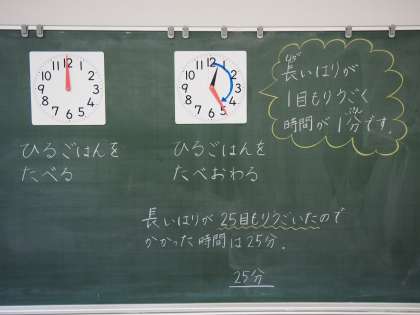 12
1
2
3
4
5
6
7
8
9
10
11
12
1
2
3
4
5
6
7
8
9
10
11
なが
長いはりが
1目もりうごく
ぷん
時間が1分です。
ひるごはんを
たべる
ひるごはんを
たべおわる
長いはりが25目もりうごいたので
かかった時間は25分。
25分